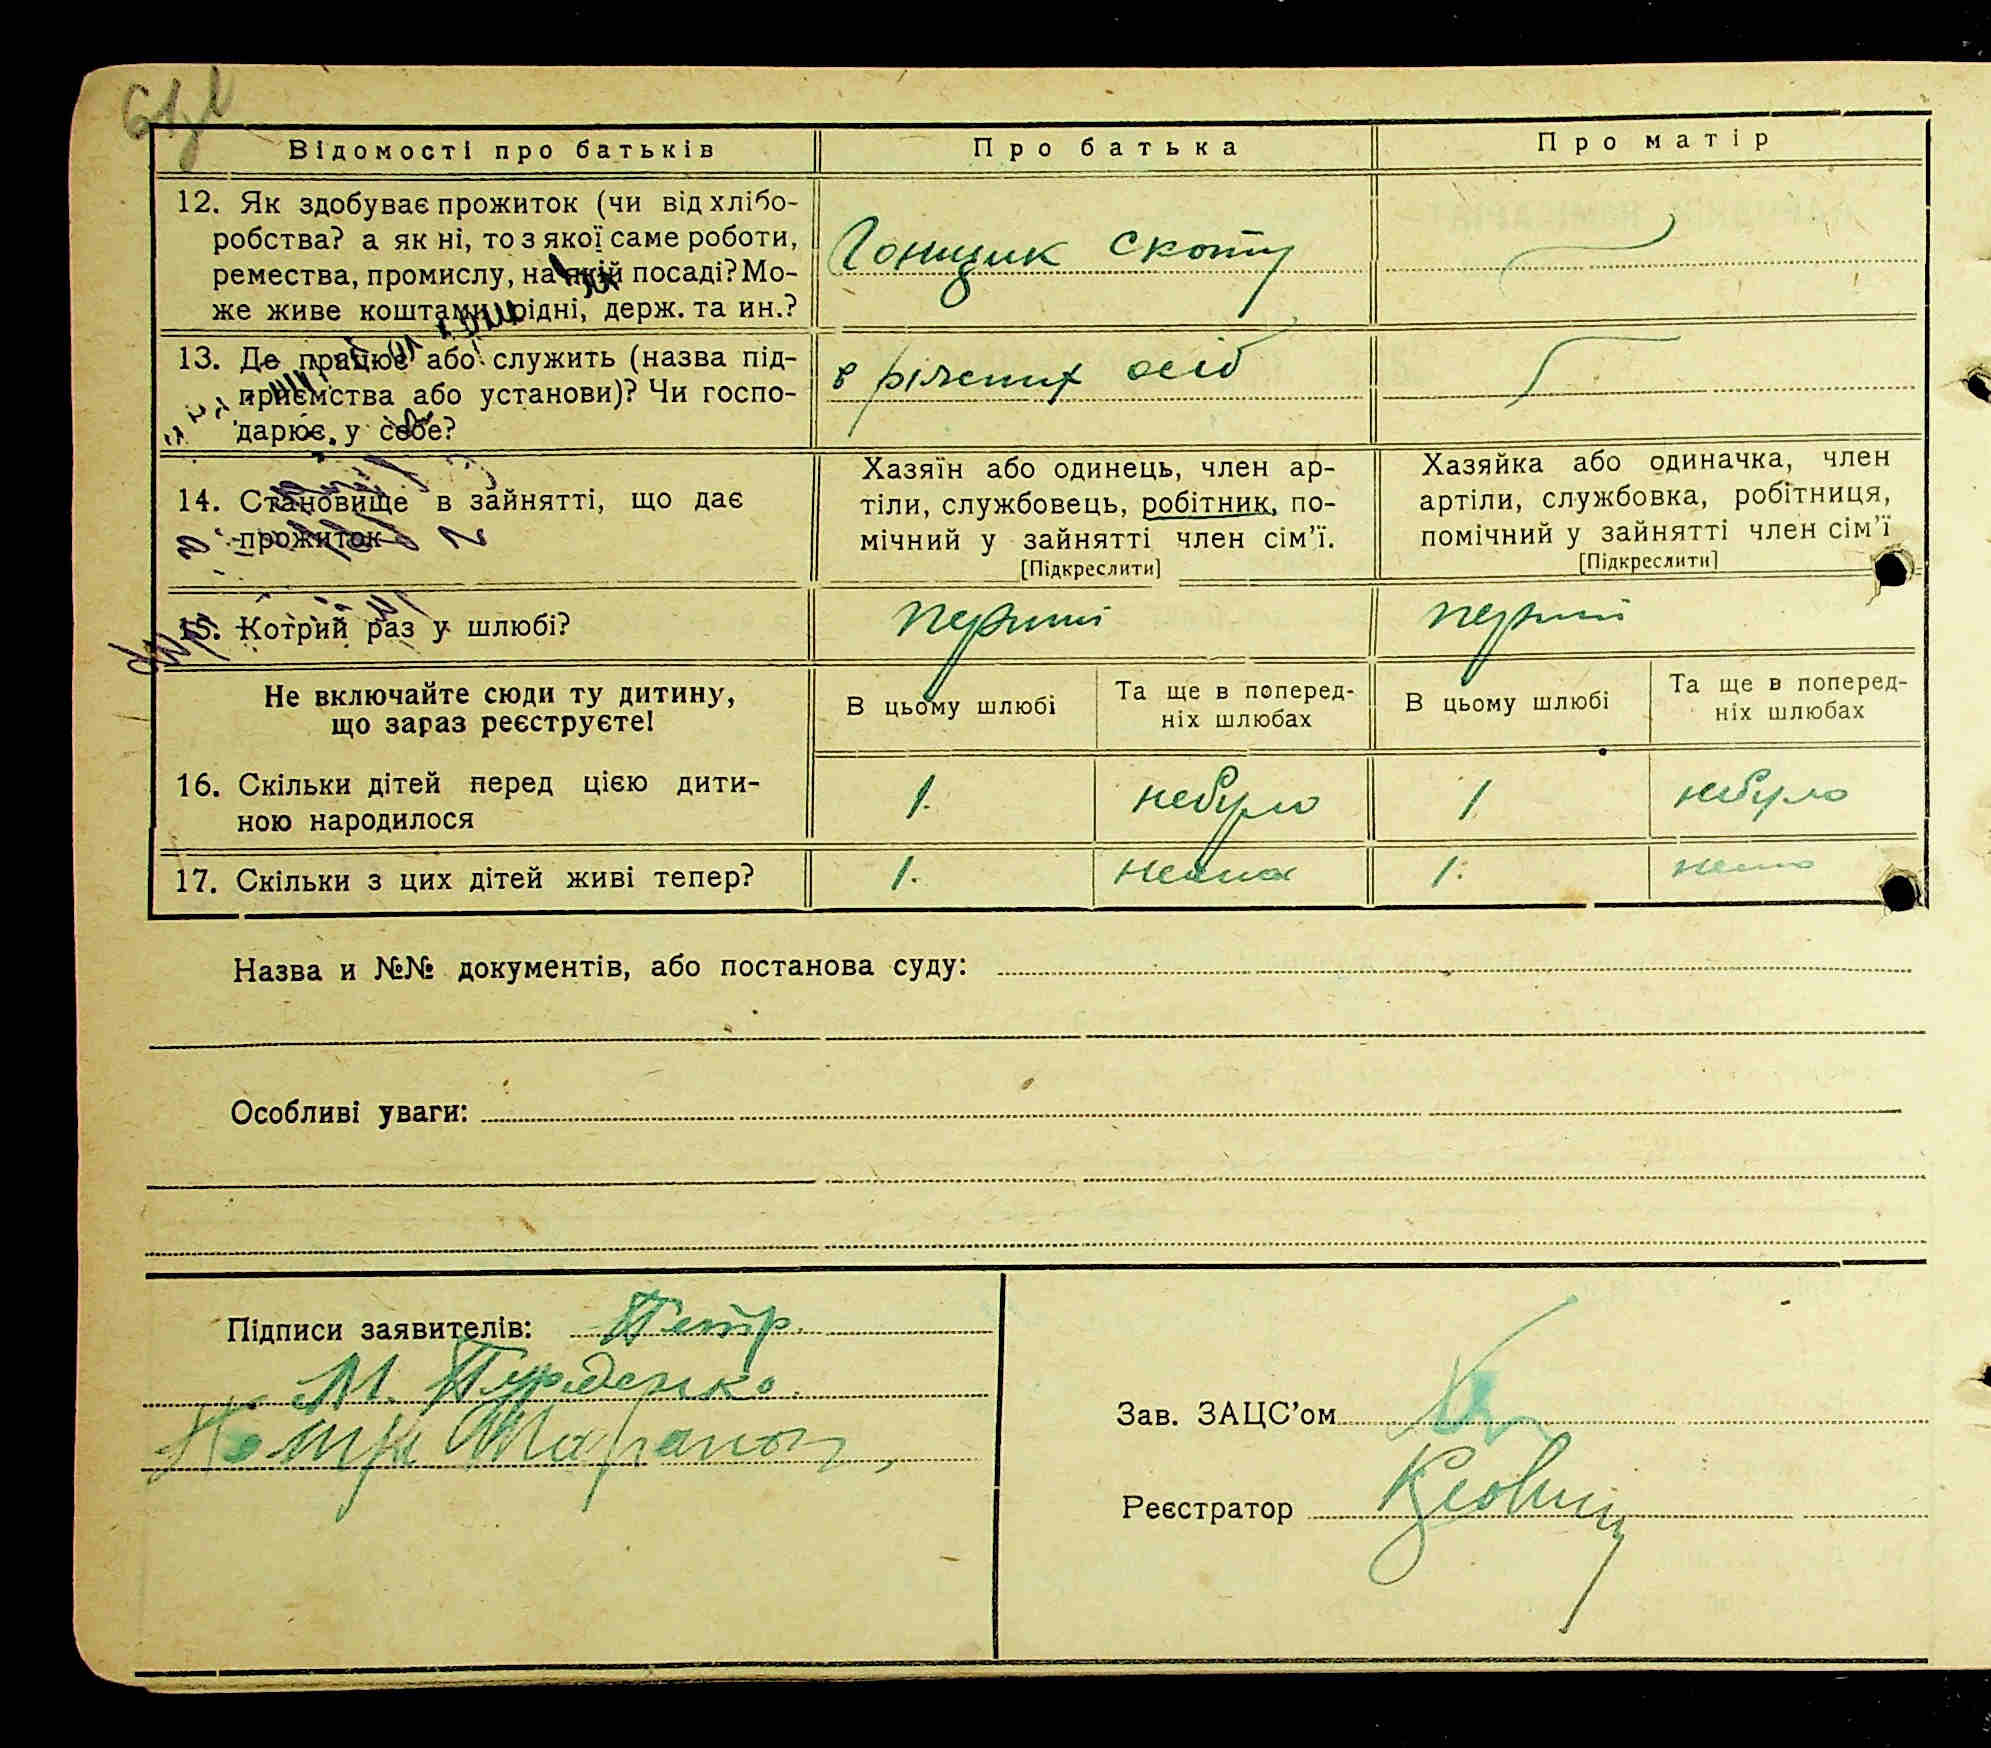 Відомості про батьків
Про батька
Про матір
12. Як здобуває прожиток (чи від хлібо-
робства? а як ні, то з якої саме роботи,
ремества, промислу, на якій посаді? Мо-
же живе коштами рідні, держ. та ин.?
Гонщик скоту
13. Де працює або служить (назва під-
приємства або установи)? Чи госпо-
дарює у себе?
в різних осіб
14. Становище в зайнятті, що дає
прожиток
Хазяїн або одинець, член ар-
тіли, службовець, робітник, по-
мічний у зайнятті член сім'ї.
[Підкреслити]
Хазяйка або одиначка, член
артіли, службовка, робітниця,
помічний у зайнятті член сім'ї
[Підкреслити]
15. Котрий раз у шлюбі?
перший
перший
Не включайте сюди ту дитину,
що зараз реєструєте!
В цьому шлюбі
Та ще в поперед-
ніх шлюбах
В цьому шлюбі
Та ще в поперед-
ніх шлюбах
16. Скільки дітей перед цією дити-
ною народилося
1.
небуло
1
небуло
17. Скільки з цих дітей живі тепер?
1.
нема
1.
нема
Назва и №№ документів, або постанова суду:
Особливі уваги:
Підписи заявителів: Петр
М.
Зав. ЗАЦС'ом
Реєстратор